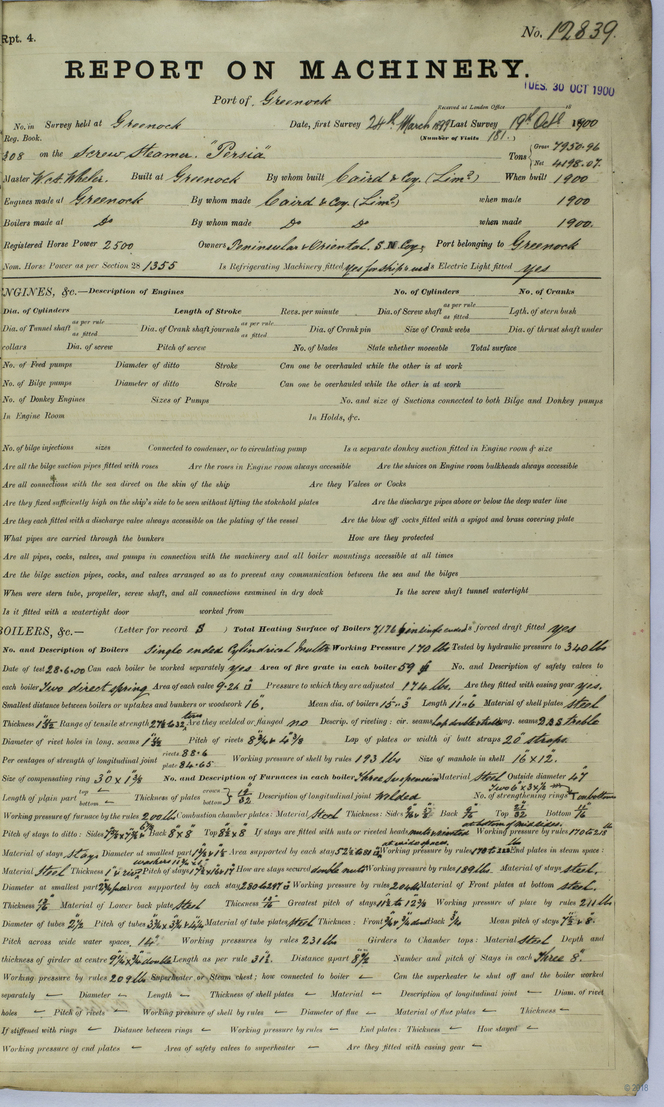 Rpt. 4.
No. 12839.
REPORT ON MACHINERY.
TUES. 30 OCT 1900
Port of Greenock
Received at London Office 18
No. in Survey held at Greenock Date, first Survey 24th March 1899 Last Survey 19th Octr 1900
Reg. Book. (Number of Visits 181.)
308 on the Screw Steamer "Persia" Tons { Gross 7950.96 Net 4198.07.
Master W. A. Wheler. Built at Greenock By whom built Caird & Coy. (Limd) When built 1900
Engines made at Greenock By whom made Caird & Coy. (Limd) when made 1900
Boilers made at Do By whom made Do Do when made 1900.
Registered Horse Power 2500 Owners Peninsular & Oriental. S. N. Coy. Port belonging to Greenock
Nom. Horse Power as per Section 28 1355 Is Refrigerating Machinery fitted yes for ship's use Is Electric Light fitted yes
ENGINES, &c.—Description of Engines No. of Cylinders No. of Cranks
Dia. of Cylinders Length of Stroke Revs. per minute Dia. of Screw shaft as per rule as fitted Lgth. of stern bush
Dia. of Tunnel shaft as per rule as fitted Dia. of Crank shaft journals as per rule as fitted Dia. of Crank pin Size of Crank webs Dia. of thrust shaft under
collars Dia. of screw Pitch of screw No. of blades State whether moveable Total surface
No. of Feed pumps Diameter of ditto Stroke Can one be overhauled while the other is at work
No. of Bilge pumps Diameter of ditto Stroke Can one be overhauled while the other is at work
No. of Donkey Engines Sizes of Pumps No. and size of Suctions connected to both Bilge and Donkey pumps
In Engine Room In Holds, &c.
No. of bilge injections sizes Connected to condenser, or to circulating pump Is a separate donkey suction fitted in Engine room & size
Are all the bilge suction pipes fitted with roses Are the roses in Engine room always accessible Are the sluices on Engine room bulkheads always accessible
Are all connections with the sea direct on the skin of the ship Are they Valves or Cocks
Are they fixed sufficiently high on the ship's side to be seen without lifting the stokehold plates Are the discharge pipes above or below the deep water line
Are they each fitted with a discharge valve always accessible on the plating of the vessel Are the blow off cocks fitted with a spigot and brass covering plate
What pipes are carried through the bunkers How are they protected
Are all pipes, cocks, valves, and pumps in connection with the machinery and all boiler mountings accessible at all times
Are the bilge suction pipes, cocks, and valves arranged so as to prevent any communication between the sea and the bilges
When were stern tube, propeller, screw shaft, and all connections examined in dry dock Is the screw shaft tunnel watertight
Is it fitted with a watertight door worked from
BOILERS, &c.— (Letter for record S) Total Heating Surface of Boilers 7176 in single ended Is forced draft fitted yes
No. and Description of Boilers Single ended Cylindrical Multr Working Pressure 170 lbs Tested by hydraulic pressure to 340 lbs
Date of test 28.6.00 Can each boiler be worked separately yes Area of fire grate in each boiler 59 No. and Description of safety valves to
each boiler Two direct spring Area of each valve 9.26 Pressure to which they are adjusted 174 lbs. Are they fitted with easing gear yes.
Smallest distance between boilers or uptakes and bunkers or woodwork 16" Mean dia. of boilers 15.3 Length 11.6 Material of shell plates steel
Thickness Range of tensile strength tons Are they welded or flanged no Descrip. of riveting: cir. seams Lap double long. seams D.B.S treble
Diameter of rivet holes in long. seams Pitch of rivets Lap of plates or width of butt straps 20" straps.
Per centages of strength of longitudinal joint rivets 88.6 plate 84.65 Working pressure of shell by rules 193 lbs Size of manhole in shell 16" x 12"
Size of compensating ring No. and Description of Furnaces in each boiler Three Suspension Material Steel Outside diameter 47
Length of plain part top bottom Thickness of plates crown bottom Description of longitudinal joint Welded No. of strengthening rings
Working pressure of furnace by the rules 200 lbs Combustion chamber plates: Material Steel Thickness: Sides Back Top Bottom
Pitch of stays to ditto: Sides Back 8 x 8 Top If stays are fitted with nuts or riveted heads nuts Working pressure by rules
Material of stays Diameter at smallest part Area supported by each stay Working pressure by rules End plates in steam space:
Material Steel Thickness Pitch of stays How are stays secured double nuts Working pressure by rules 189 lbs. Material of stays steel.
Diameter at smallest part Area supported by each stay Working pressure by rules Material of Front plates at bottom steel.
Thickness Material of Lower back plate steel Thickness Greatest pitch of stays Working pressure of plate by rules 211 lbs
Diameter of tubes 2½ Pitch of tubes Material of tube plates Steel Thickness: Front Back Mean pitch of stays
Pitch across wide water spaces 14" Working pressures by rules 231 lbs Girders to Chamber tops: Material Steel Depth and
thickness of girder at centre Length as per rule Distance apart Number and pitch of Stays in each Three 8"
Working pressure by rules 209 lbs Superheater or Steam chest; how connected to boiler Can the superheater be shut off and the boiler worked
separately Diameter Length Thickness of shell plates Material Description of longitudinal joint Diam. of rivet
holes Pitch of rivets Working pressure of shell by rules Diameter of flue Material of flue plates Thickness
If stiffened with rings Distance between rings Working pressure by rules End plates: Thickness How stayed
Working pressure of end plates Area of safety valves to superheater Are they fitted with easing gear
© 2018